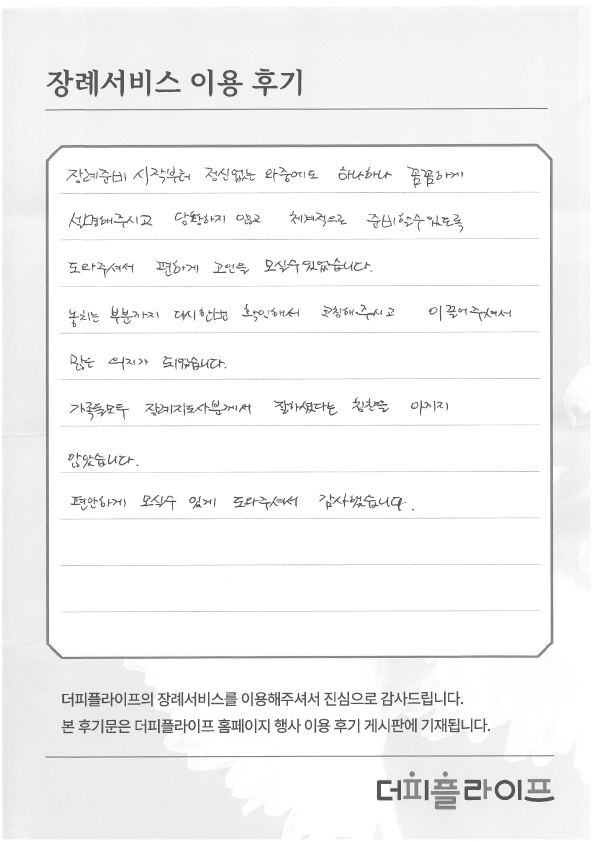 장례서비스 이용 후기
장례준비 시작부터 정신없는 와중에도 하나하나 꼼꼼하게
설명해주시고 당황하지 않고 체계적으로 준비할수있도록
도와주셔서 편하게 고인을 모실수있었습니다.
놓치는 부분까지 다시한번 확인해서 코칭해주시고 이끌어주셔서
많은 의지가 되었습니다.
가족들모두 장례지도사분께서 잘하셨다는 칭찬을 아끼지
않았습니다.
편안하게 모실수 있게 도와주셔서 감사했습니다.
더피플라이프의 장례서비스를 이용해주셔서 진심으로 감사드립니다.
본 후기문은 더피플라이프 홈페이지 행사 이용 후기 게시판에 기재됩니다.
더피플라이프